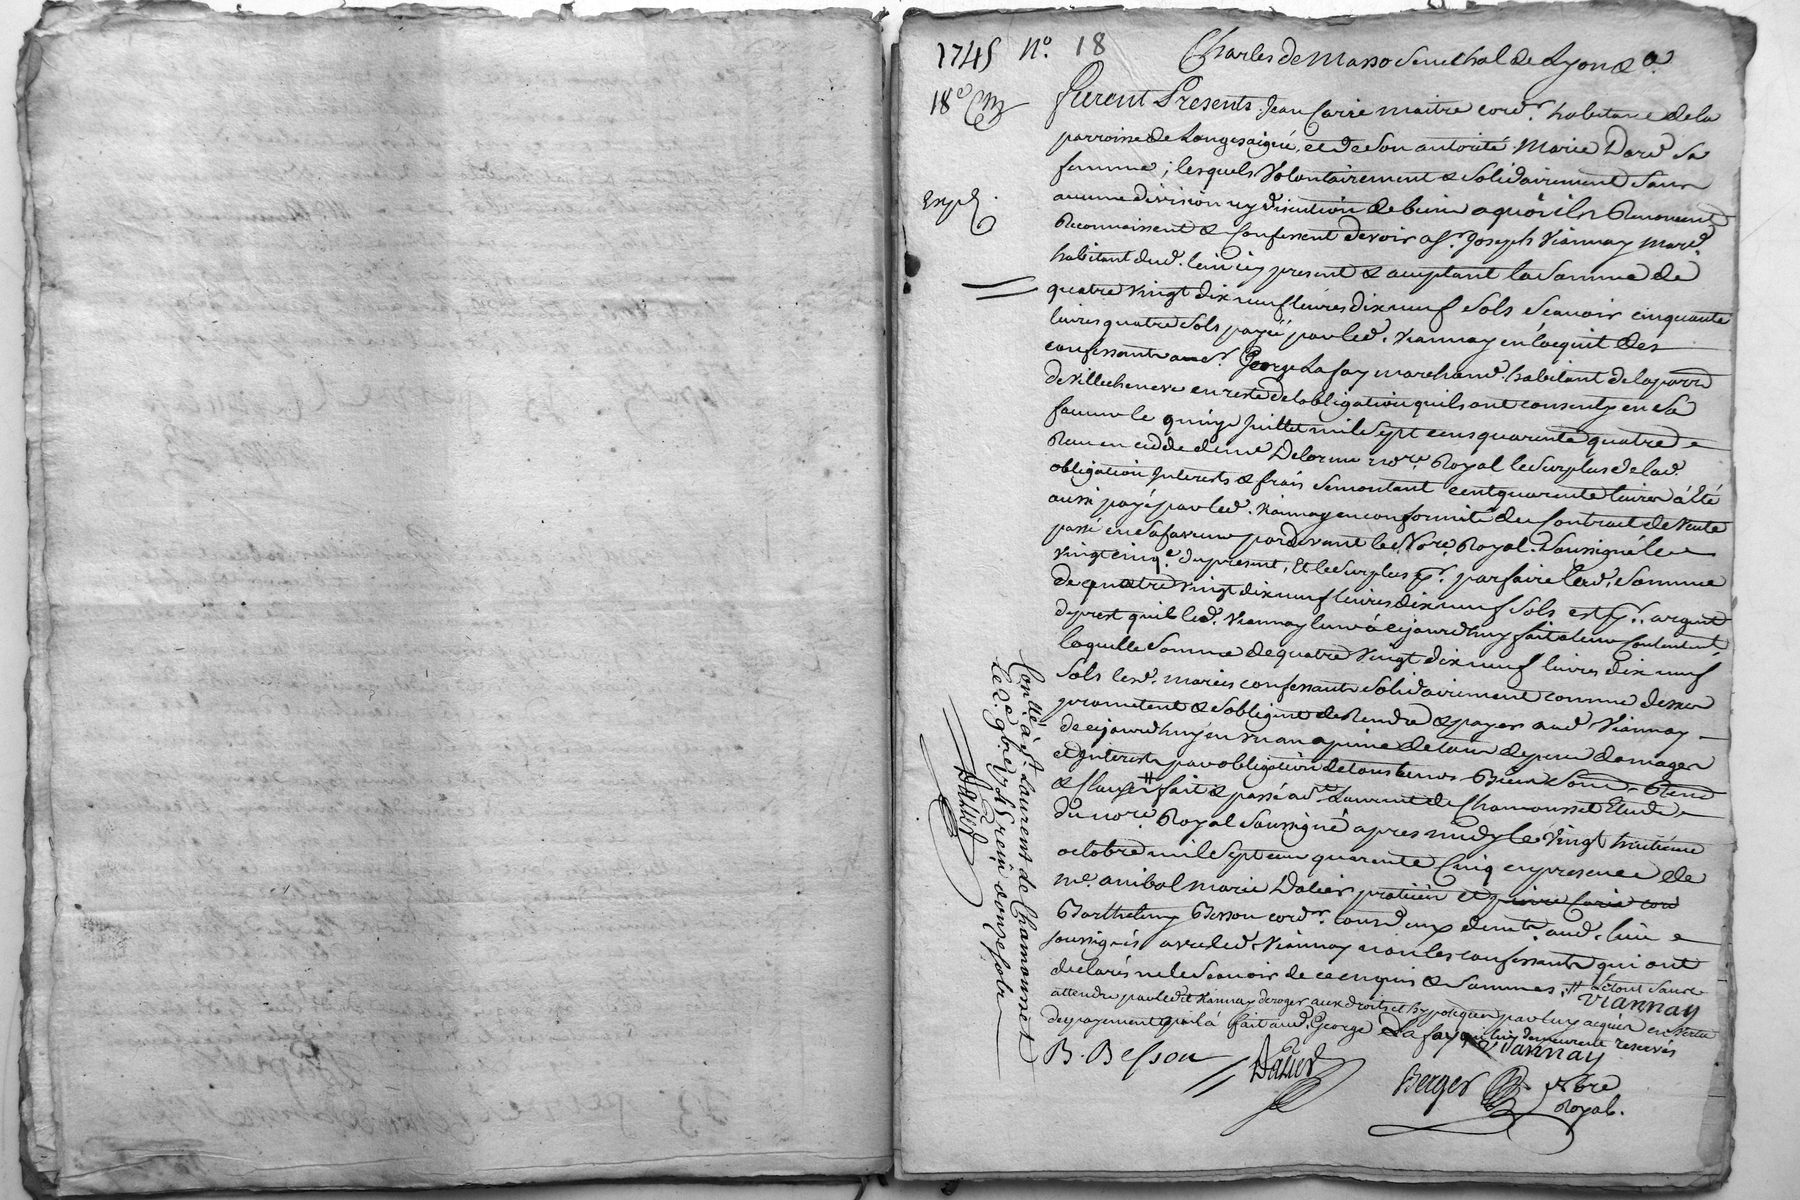 1745 No. 18
Charles de Masso Senechal de Lyon & a.
18e
Furent Presents Jean Carré maitre cordr. habitant de la
parroisse de Longessaigne, et de son autorité Marie Dard sa
femme; lesquels Volontairement & Solidairement Sans
aucune division ny discution de biens a quoi ils Renoncent
Expé.
Reconnoissent & Confessent devoir a Sr. Joseph Viannay Marcd.
habitant dud. lieu icy present & acceptant la Somme de
quatre Vingt dix neuf livres dix neuf Sols Scavoir cinquante
livres quatre Sols payée par led. Viannay en l'acquit des
confessants a Sr. George Lafay marchand habitant de la parr.
de Villecheneve en reste de lobligation quils ont consenty en Sa
faveur le quinze Juillet mil Sept cens quarente quatre
Delorme no.re Royal le Surplus de lad.
obligation Interests & frais Semontant cent quarente livres a Eté
aussi payé par led. Viannay en conformité du Contract de Vente
passé en Sa faveur pardevant le No.re Royal Soussigné le
vingt cinqe. du present, Et le Surplus pr. parfaire lad. Somme
de quatre Vingt dix neuf livres dix neuf Sols est pr. argent
de prest quil led. Viannay leur a cejourdhuy fait a leur Contentemt.
laquelle Somme de quatre Vingt dix neuf livres dix neuf
Sols lesd. mariés confessants Solidairement comme dessus
promettent & Sobligent de Rendre & payer aud. Viannay
de cejourdhuy en un an a peine de tous depens domages
et Interests par obligation de tous leurs Biens Soum. Renon.
& Clauses # fait & passé a St. Laurent de Chamousset Etude
du no.re Royal Soussigné apres midy le Vingt huitieme
octobre mil Sept cens quarente Cinq en presence de
Me. anibal Marie Dalier praticien et pierre Carré cord
Barthelemy Besson cordr. tous deux demts. aud. lieu
soussignés avec led. Viannay non les confessants qui ont
declarés ne le Scavoir de ce enquis & Sommés, # le tout Sans
attendre par ledit Viannay deroger aux droits et hypotecques par luy acquis en vertu
du payement quil a fait aud. George Lafay qui luy demeurent reservés
Viannay
Viannay
B. Besson
Dalier
Berger no.re
Royal.
Conllé a St. Laurent de Chamousset
le 2e. 9bre 1745 Reçu douze sols
Dalier